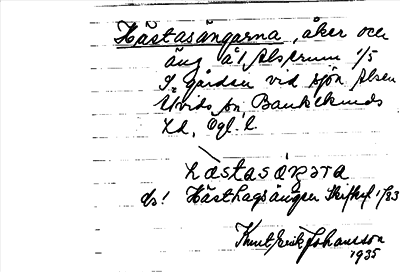 Hästasängarna, åker och
äng å 1 Alsterum 1/5
S. gården vid sjön Alsen
Utvids sn Bankekinds
hd, Ögl. l.
hästasáŋəra
ds! Hästhagsängen Skifteskf 1783
Knut Erik Johansson
1935